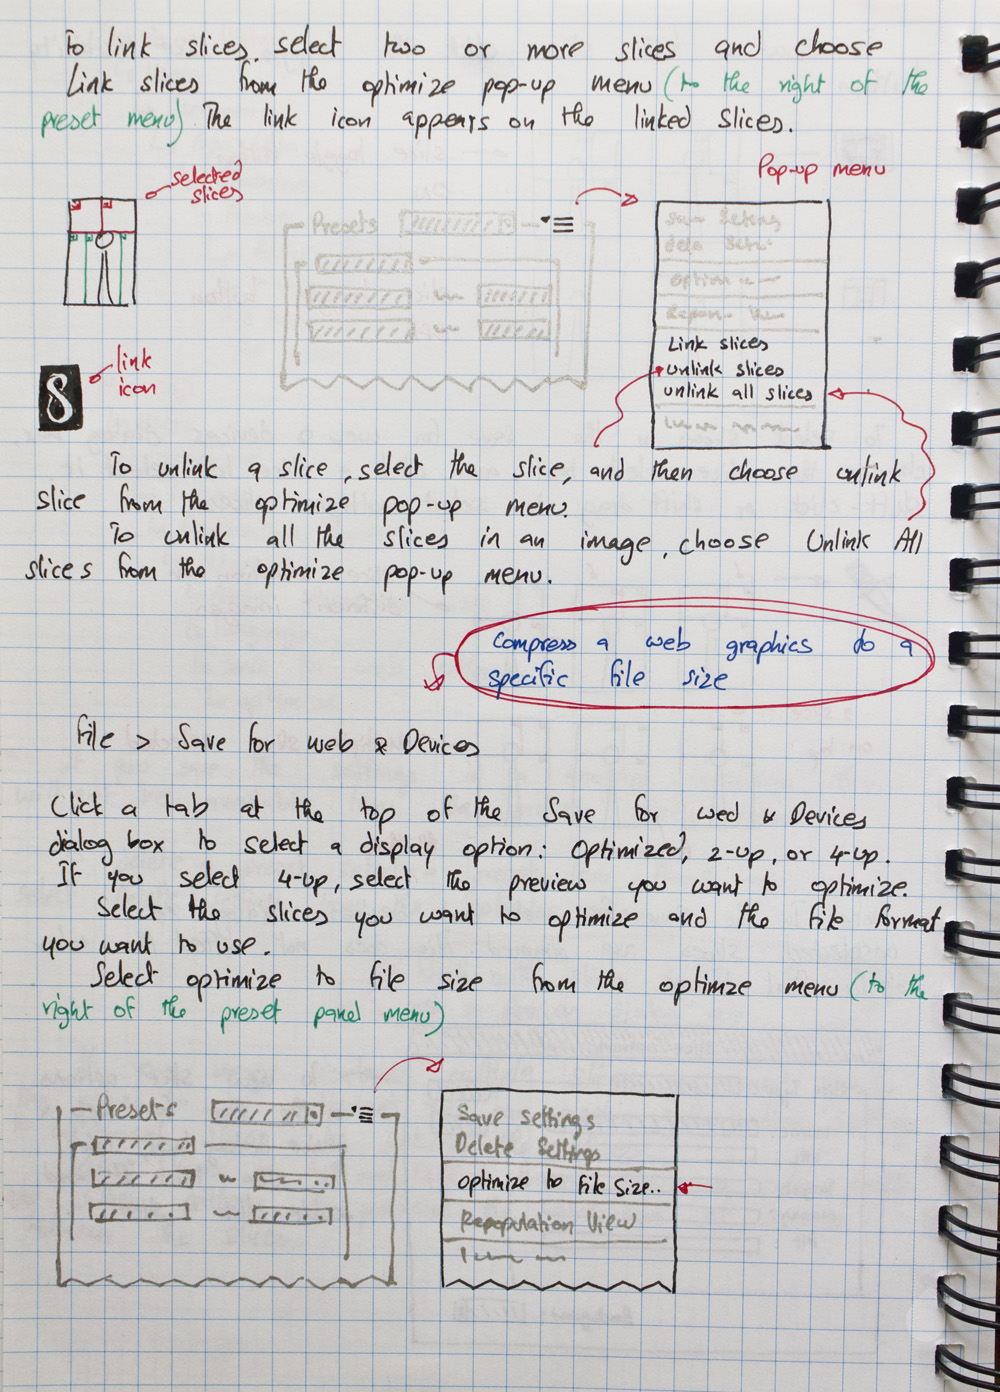 To link slices, select two or more slices and choose
Link slices from the optimize pop-up menu (to the right of the
preset menu) The link icon appears on the linked slices.
selected
slices
Pop-up menu
Presets
Link slices
unlink slices
unlink all slices
link
icon
8
To unlink a slice, select the slice, and then choose unlink
slice from the optimize pop-up menu.
To unlink all the slices in an image, choose Unlink All
slices from the optimize pop-up menu.
compress a web graphics do a
specific file size
file > Save for web & Devices
Click a tab at the top of the Save for wed & Devices
dialog box to select a display option: Optimized, 2-up, or 4-up.
If you select 4-up, select the preview you want to optimize.
Select the slices you want to optimize and the file format
you want to use.
Select optimize to file size from the optimze menu (to the
right of the preset panel menu)
Presets
Save settings
Delete Settings
optimize to file size..
Repopulation View